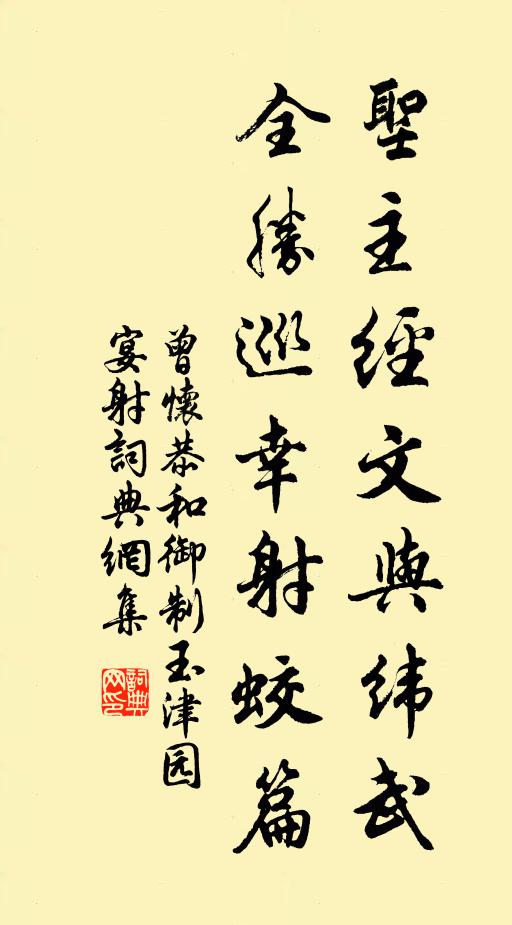 聖主經文與緯武
全勝巡幸射蛟篇
曾懷恭和御制玉津园
宴射詞典網集
詞典網印